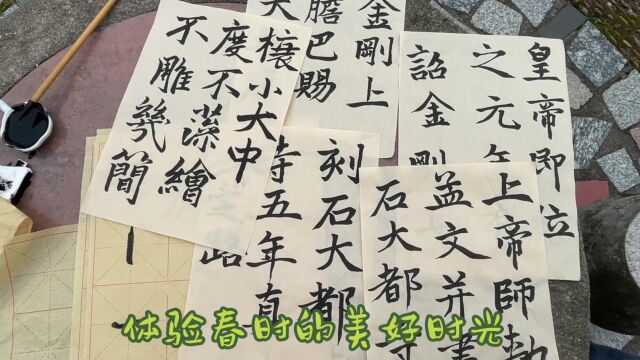 皇帝即位
之元年
詔金剛
金剛上
膽巴賜
大
榱小大中
度不藻繪
不雕幾簡
上帝師勅
益文并書
石大都寺
刻石大都
寺五年真
路
体验春时的美好时光